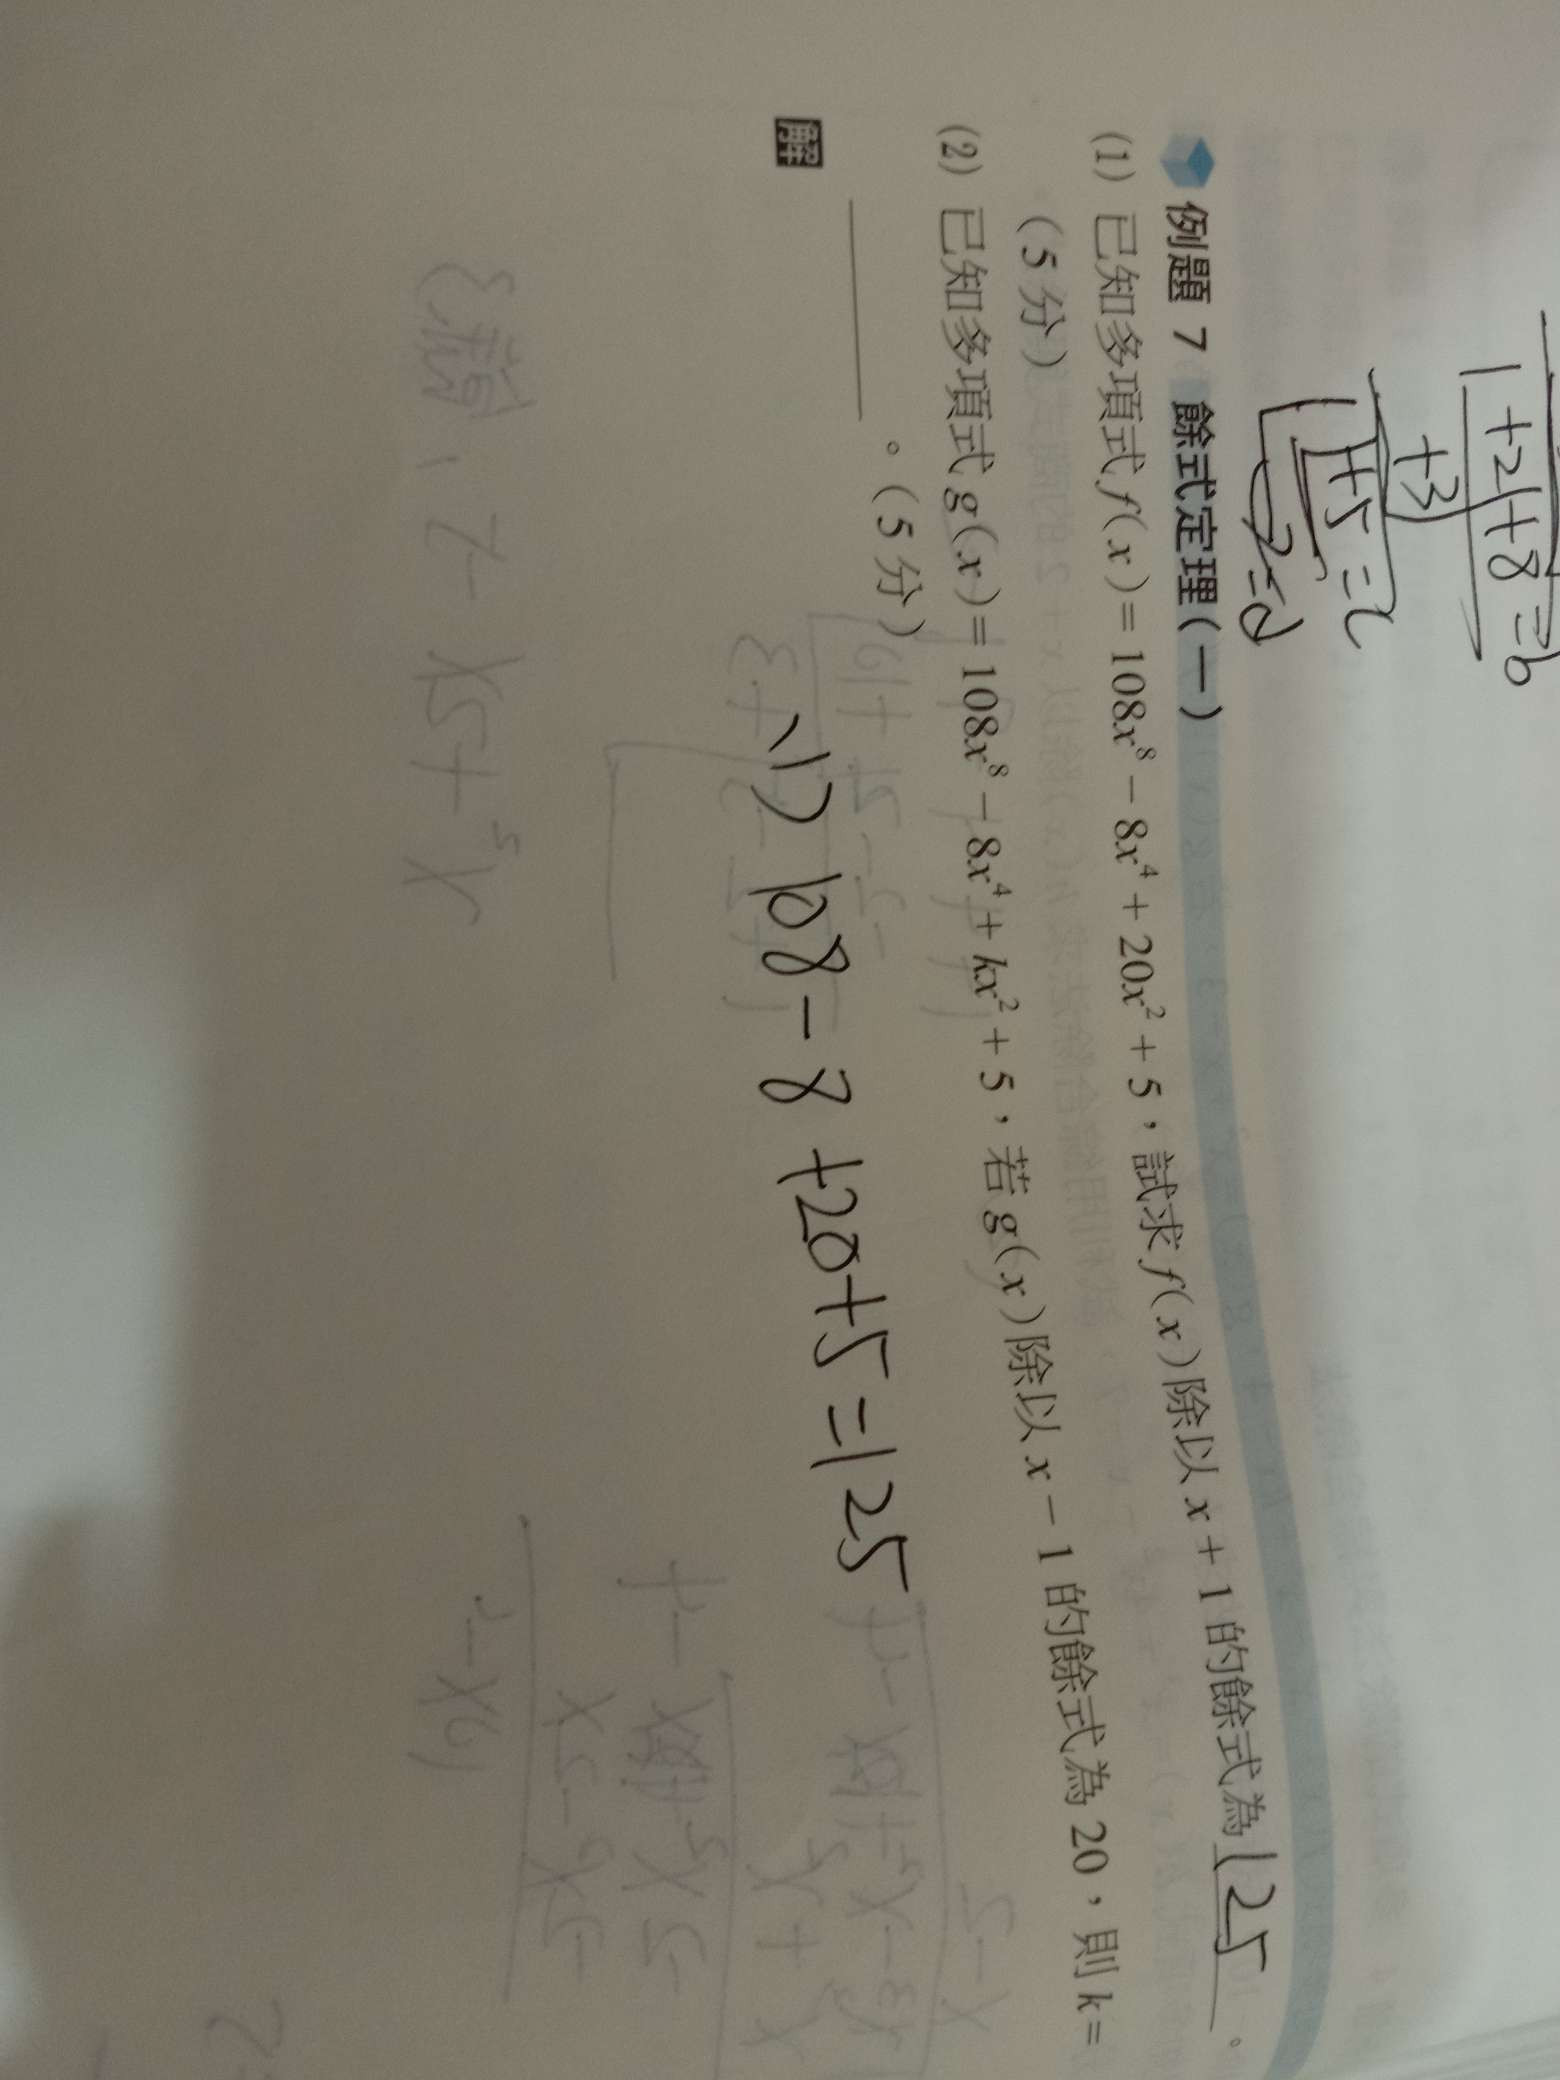 1 +2 +8 = b
+3
1 +5 = c
2 = d
例題 7 餘式定理(一)
(1) 已知多項式 f(x) = 108x⁸ − 8x⁴ + 20x² + 5,試求 f(x) 除以 x + 1 的餘式為 125 。
(5 分)
(2) 已知多項式 g(x) = 108x⁸ − 8x⁴ + kx² + 5,若 g(x) 除以 x − 1 的餘式為 20,則 k =
______。(5 分)
解
(1) 108 − 8 + 20 + 5 = 125